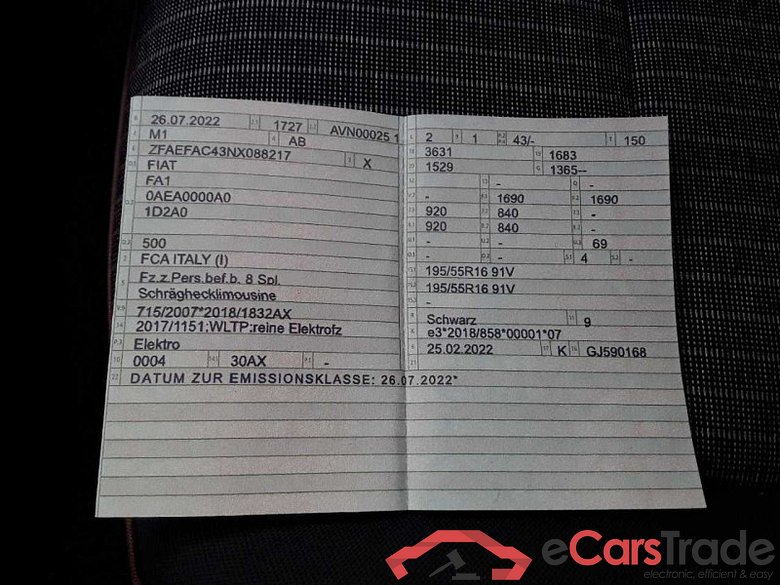 26.07.2022 1727 AVN00025 1
M1 AB
ZFAEFAC43NX088217 X
FIAT
FA1
0AEA0000A0
1D2A0
500
FCA ITALY (I)
Fz.z.Pers.bef.b. 8 Spl.
Schräghecklimousine
715/2007*2018/1832AX
2017/1151;WLTP;reine Elektrofz
Elektro
0004 30AX -
DATUM ZUR EMISSIONSKLASSE: 26.07.2022*
2 1 43/- 150
3631 1683
1529 1365--
- -
- 1690 1690
920 840 -
920 840 -
- - 69
- - 4 -
195/55R16 91V
195/55R16 91V
-
Schwarz 9
e3*2018/858*00001*07
25.02.2022 K GJ590168
eCarsTrade
electronic, efficient & easy